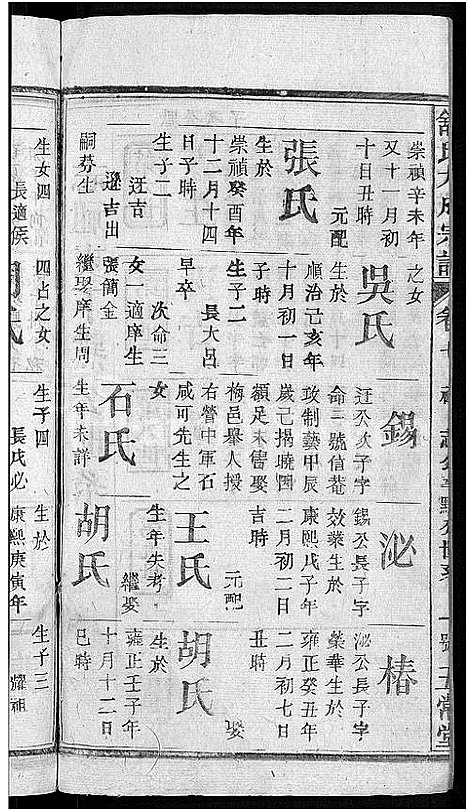 舒氏大成宗譜
卷十
五常堂
崇禎辛未年
又十一月初
十日丑時
元配
張氏
生於
崇禎癸酉年
十二月十四
日子時
生子二
迂吉
遜吉出
嗣芬生
生女四
長適侯
之女
吳氏
生於
順治己亥年
十月初一日
生子二
長大呂
早卒
次命三
女一適摩生
張簡金
繼娶摩生周
四占之女
錫
迂公次子字
命三號信菴
攻制藝甲辰
歲己揭曉圈
額足未啻娶
梅邑舉人授
右營中軍石
咸可先生之
女
石氏
生年未詳
生子四
長戌必
泌
錫公長子字
效業生於
康熙戊子年
二月初二日
吉時
元配
王氏
生年失考
繼娶
胡氏
生於
康熙庚寅年
椿
泌公長子字
榮華生於
雍正癸丑年
二月初七日
丑時
娶
胡氏
生於
雍正壬子年
十月十二日
巳時
生子三
耀祖